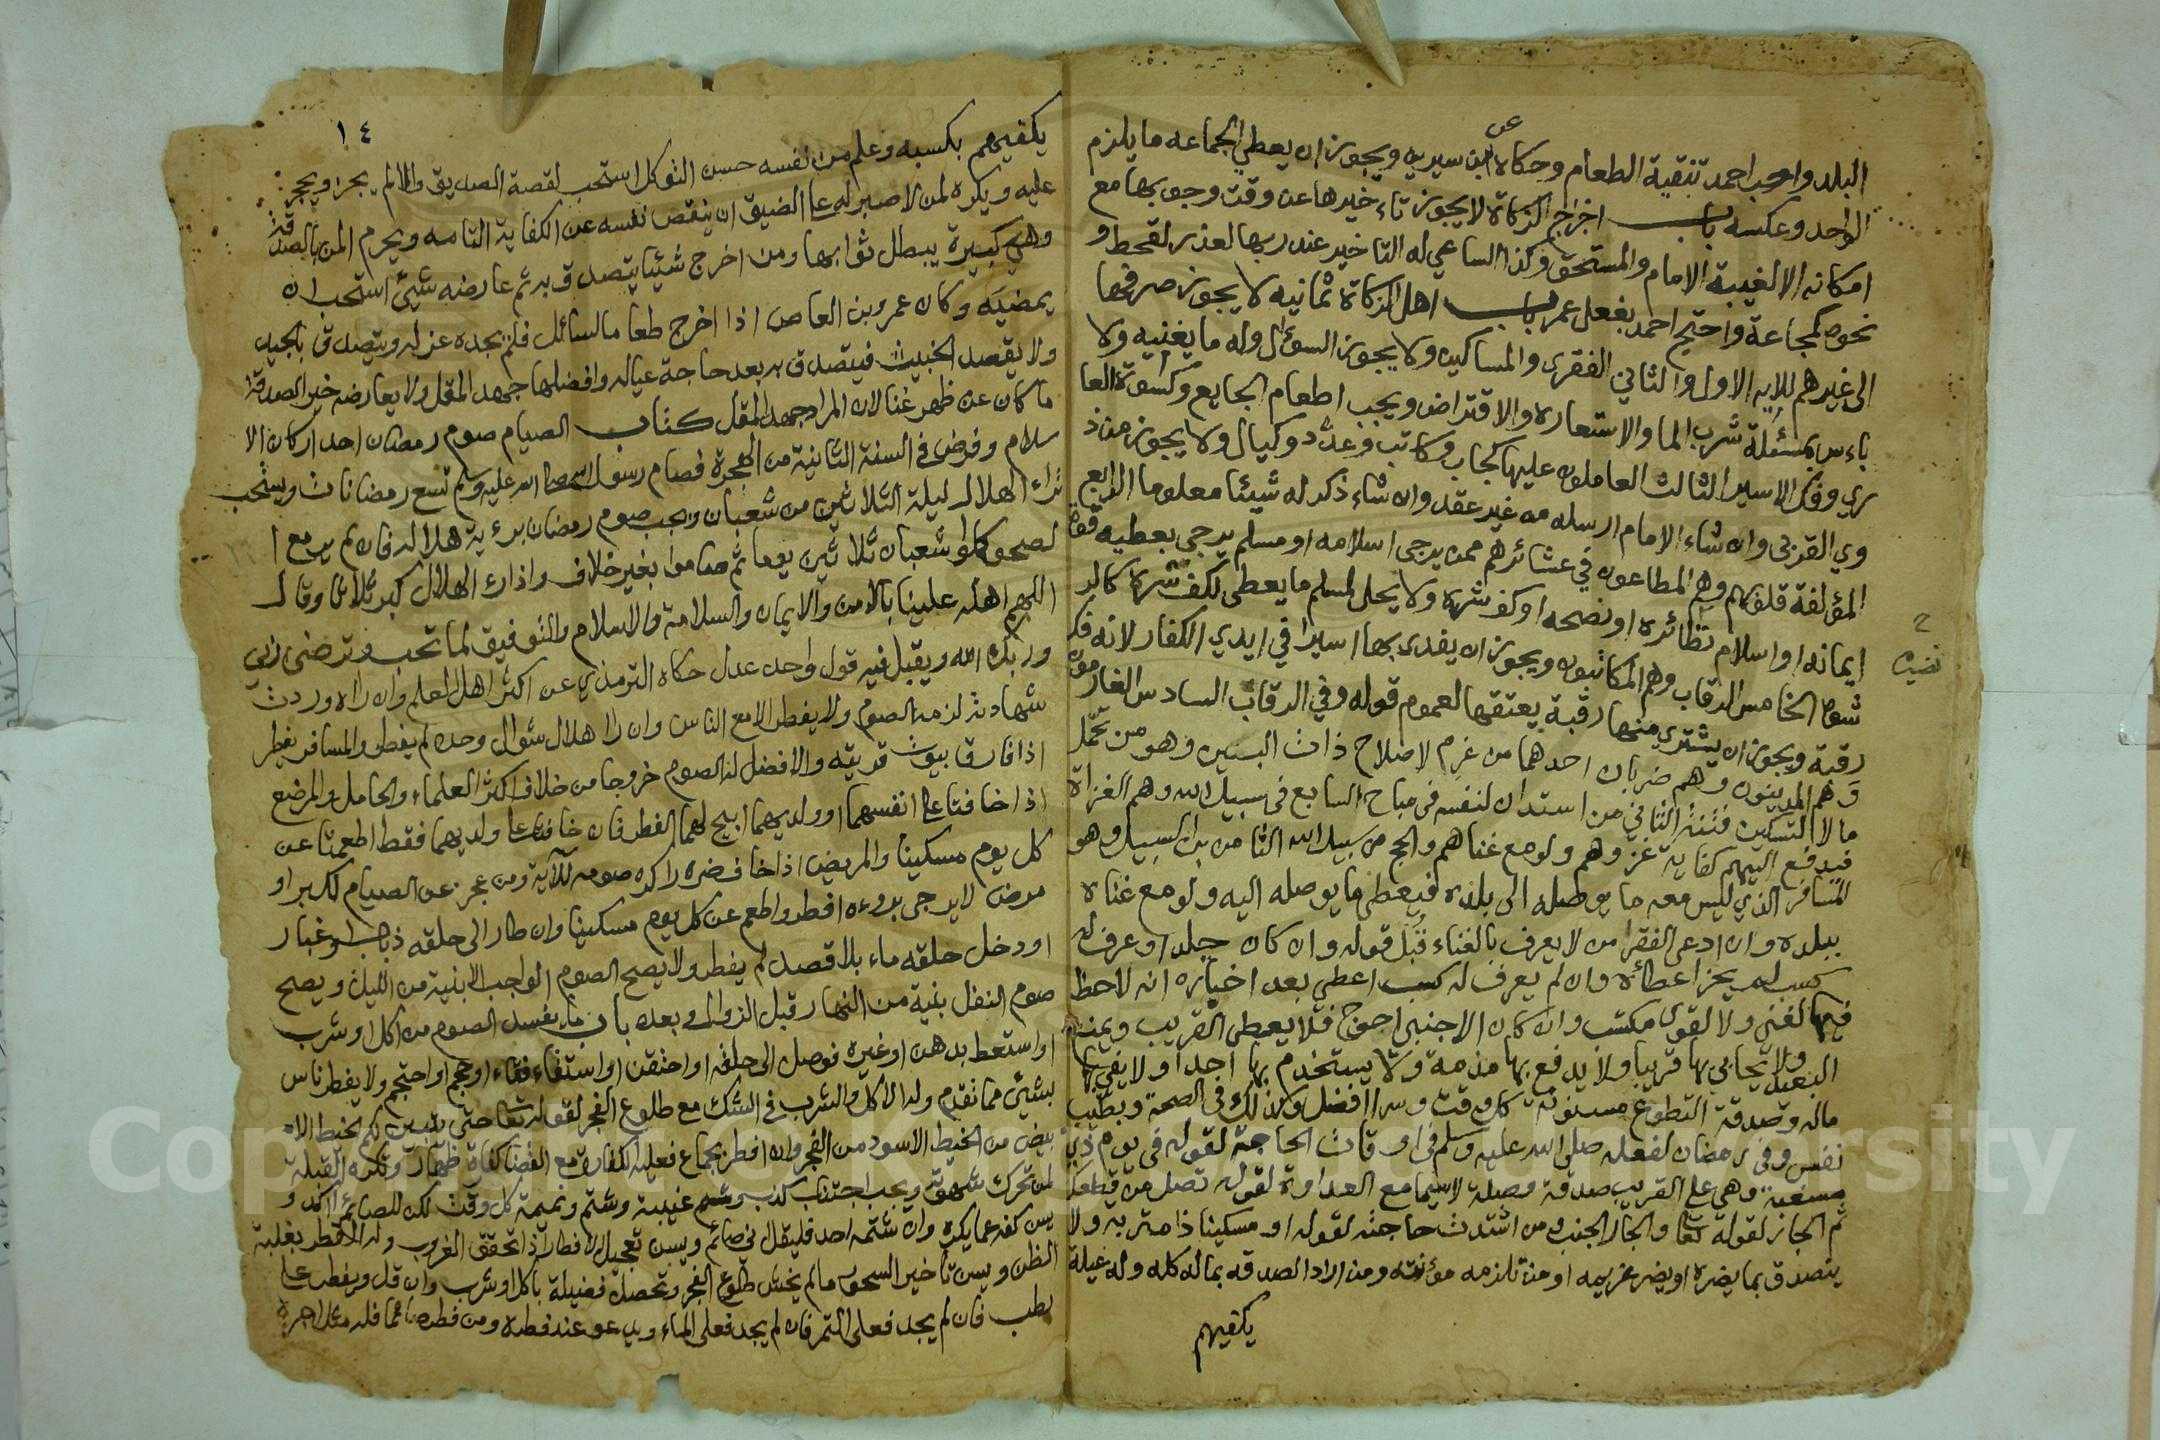 عن
البلد واوجب احمد تنقية الطعام وحكاه ابن سيرين ويجوز ان يعطي الجماعه ما يلزم
الواحد وعكسه باب اخراج الزكاة لا يجوز تاءخيرها عن وقت وجوبها مع
امكانه الا لغيبة الامام والمستحق وكذا الساعي له التاخير عند ربها لعذر لقحط و
نحوه كمجاعة واحتج احمد بفعل عمر باب اهل الزكاة ثمانيه لا يجوز صرفها
الى غيرهم للايه الاول والثاني الفقرى والمساكين ولا يجوز السوءال وله ما يغنيه ولا
باءس بمسئلة شرب الما والاستعاره والاقتراض ويجب اطعام الجايع وكسوة العا
ري وفك الاسير الثالث العاملون عليها كجاب وكاتب وعدّد وكيال ولا يجوز من ذ
وي القربى وان شاء الامام ارسله من غير عقد وان شاء ذكر له شيئا معلوما الرابع
المؤلفة قلوبهم وهم المطاعون في عشائرهم ممن يرجى اسلامه او مسلم يرجى بعطيه قوة
ايمانه او اسلام نظائره او نصحه او كف شره ولا يحل لمسلم ما يعطى لكف شره كالر
شوة الخامس الرقاب وهم المكاتبون ويجوز ان يفدى بها اسيرا في ايدي الكفار لانه فك
رقبة ويجوز ان يشتري منها رقبة يعتقها لعموم قوله وفي الرقاب السادس الغارمون
وهم المدينون وهم ضربان احدهما من غرم لاصلاح ذات البين وهو من تحمّل
مالا لتسكين فتنة الثاني من استدان لنفسه في مباح السابع في سبيل الله وهم الغزاة
فيدفع اليهم كفاية غزوهم ولو مع غناهم والحج من سبيل الله الثامن بن السبيل وهو
المسافر الذي ليس معه ما يوصله الى بلده فيعطى ما يوصله اليه ولو مع غناه
ببلده وان ادعى الفقر من لا يعرف بالغناء قُبل قوله وان كان جلدا وعرف له
كسب لم يجز اعطائه وان لم يعرف له كسب اعطي بعد اخباره انه لا حظ
فيها لغني ولا لقوي مكتسب وان كان الاجنبي احوج فلا يعطى القريب ويمنع
البعيد ولا يحابي بها قريبا ولا يدفع بها مذمة ولا يستخدم بها احدا ولا يقي بها
ماله وصدقة التطوع مسنونة كل وقت وسرا افضل وكذلك في الصحة وبطيب
نفس وفي رمضان لفعله صلى الله عليه وسلم في اوقات الحاجة لقوله في يوم ذي
مسغبة وهي على القريب صدقة وصلة لاسيما مع العداوة لقوله تصل من قطعك
ثم الجار لقوله تعا والجار الجنب ومن اشتدت حاجته لقوله او مسكينا ذا متربه ولا
يتصدق بما يضره او يضر غريمه او من تلزمه مؤنته ومن اراد الصدقه بماله كله وله عيلة
يكفيهم
١٤
يكفيهم بكسبه وعلم من نفسه حسن التوكل استحب لقصة الصديق والا لم يجز ويحجر
عليه ويكره لمن لا صبر له على الضيق ان ينقص نفسه عن الكفاية التامه ويحرم المن بالصدقة
وهي كبيرة يبطل ثوابها ومن اخرج شيئا يتصدق به ثم عارضه شيئ استحب ان
يمضيه وكان عمرو بن العاص اذا اخرج طعاما لسائل فلم يجده عزله ويتصدق بالجيد
ولا يقصد الخبيث فيتصدق به بعد حاجة عياله وافضلها جهد المقل ولا يعارضه خير الصدقة
ما كان عن ظهر غنا لان المراد جهد المقل كتاب الصيام صوم رمضان احد اركان الا
سلام وفرض في السنة الثانية من الهجرة فصام رسول الله صلى الله عليه وسلم تسع رمضانات ويستحب
تراء الهلال ليلة الثلاثين من شعبان ويجب صوم رمضان برءية هلاله فان لم ير مع ا
لصحو كملوا شعبان ثلاثين يوما ثم صاموا بغير خلاف واذا رءا الهلال كبر ثلاثا وقال
اللهم اهله علينا بالامن والايمان والسلامة والاسلام والتوفيق لما تحب وترضى ربي
وربك الله ويقبل فيه قول واحد عدل حكاه الترمذي عن اكثر اهل العلم وان راه وردت
شهادته لزمه الصوم ولا يفطر الا مع الناس وان را هلال شوال وحده لم يفطر والمسافر يفطر
اذا فارق بيوت قريته والافضل له الصوم خروجا من خلاف اكثر العلماء والحامل والمرضع
اذا خافتا على انفسهما او ولديهما ابيح لهما الفطر فان خافتا على ولديهما فقط اطعمتا عن
كل يوم مسكينا والمريض اذا خاف ضررا كره صومه للآية ومن عجز عن الصيام لكبر او
مرض لا يرجى بروءه افطر واطعم عن كل يوم مسكينا وان طار الى حلقه ذباب او غبار
او دخل حلقه ماء بلا قصد لم يفطر ولا يصح الصوم الواجب الا بنية من الليل ويصح
صوم النفل بنية من النهار قبل الزوال وبعده باب ما يفسد الصوم من اكل او شرب
او استعط بدهن او غيره فوصل الى حلقه او احتقن او استقاء فقاء او حجم او احتجم ولا يفطر ناس
بشيئ مما تقدم وله الاكل والشرب في الشك مع طلوع الفجر لقوله تعا حتى يتبين لكم الخيط الا
بيض من الخيط الاسود من الفجر وان افطر بجماع فعليه الكفارة مع القضا كفارة ظهار وتكره القبلة
لمن تحرك شهوته ويجب اجتناب كذب وغيبة وشتم ونميمة كل وقت لكن للصائم اكد و
يسن كفه عما يكره وان شتمه احد فليقل اني صائم ويسن تعجيل الافطار اذا تحقق الغروب وله الفطر بغلبة
الظن ويسن تأخير السحور ما لم يخش طلوع الفجر وتحصل فضيلة باكل او شرب وان قل ويفطر على
رطب فان لم يجد فعلى التمر فان لم يجد فعلى الماء ويدعو عند فطره ومن فطر صائما فله مثل اجره